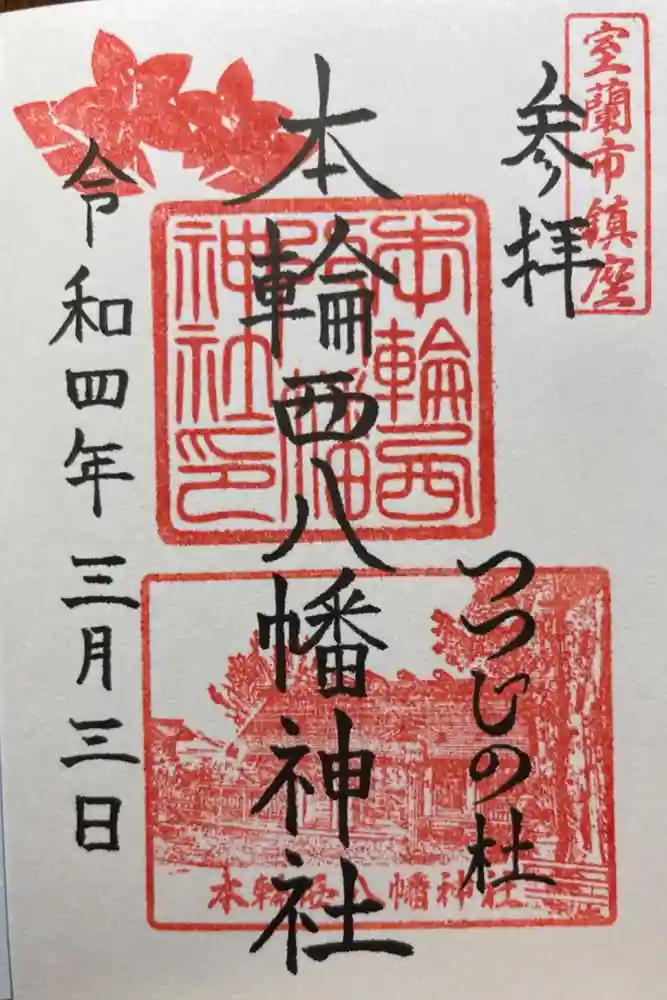 室蘭市鎮座
参拝
つつじの杜
本輪西八幡神社
本輪西
八幡
神社印
本輪西八幡神社
令和四年三月三日